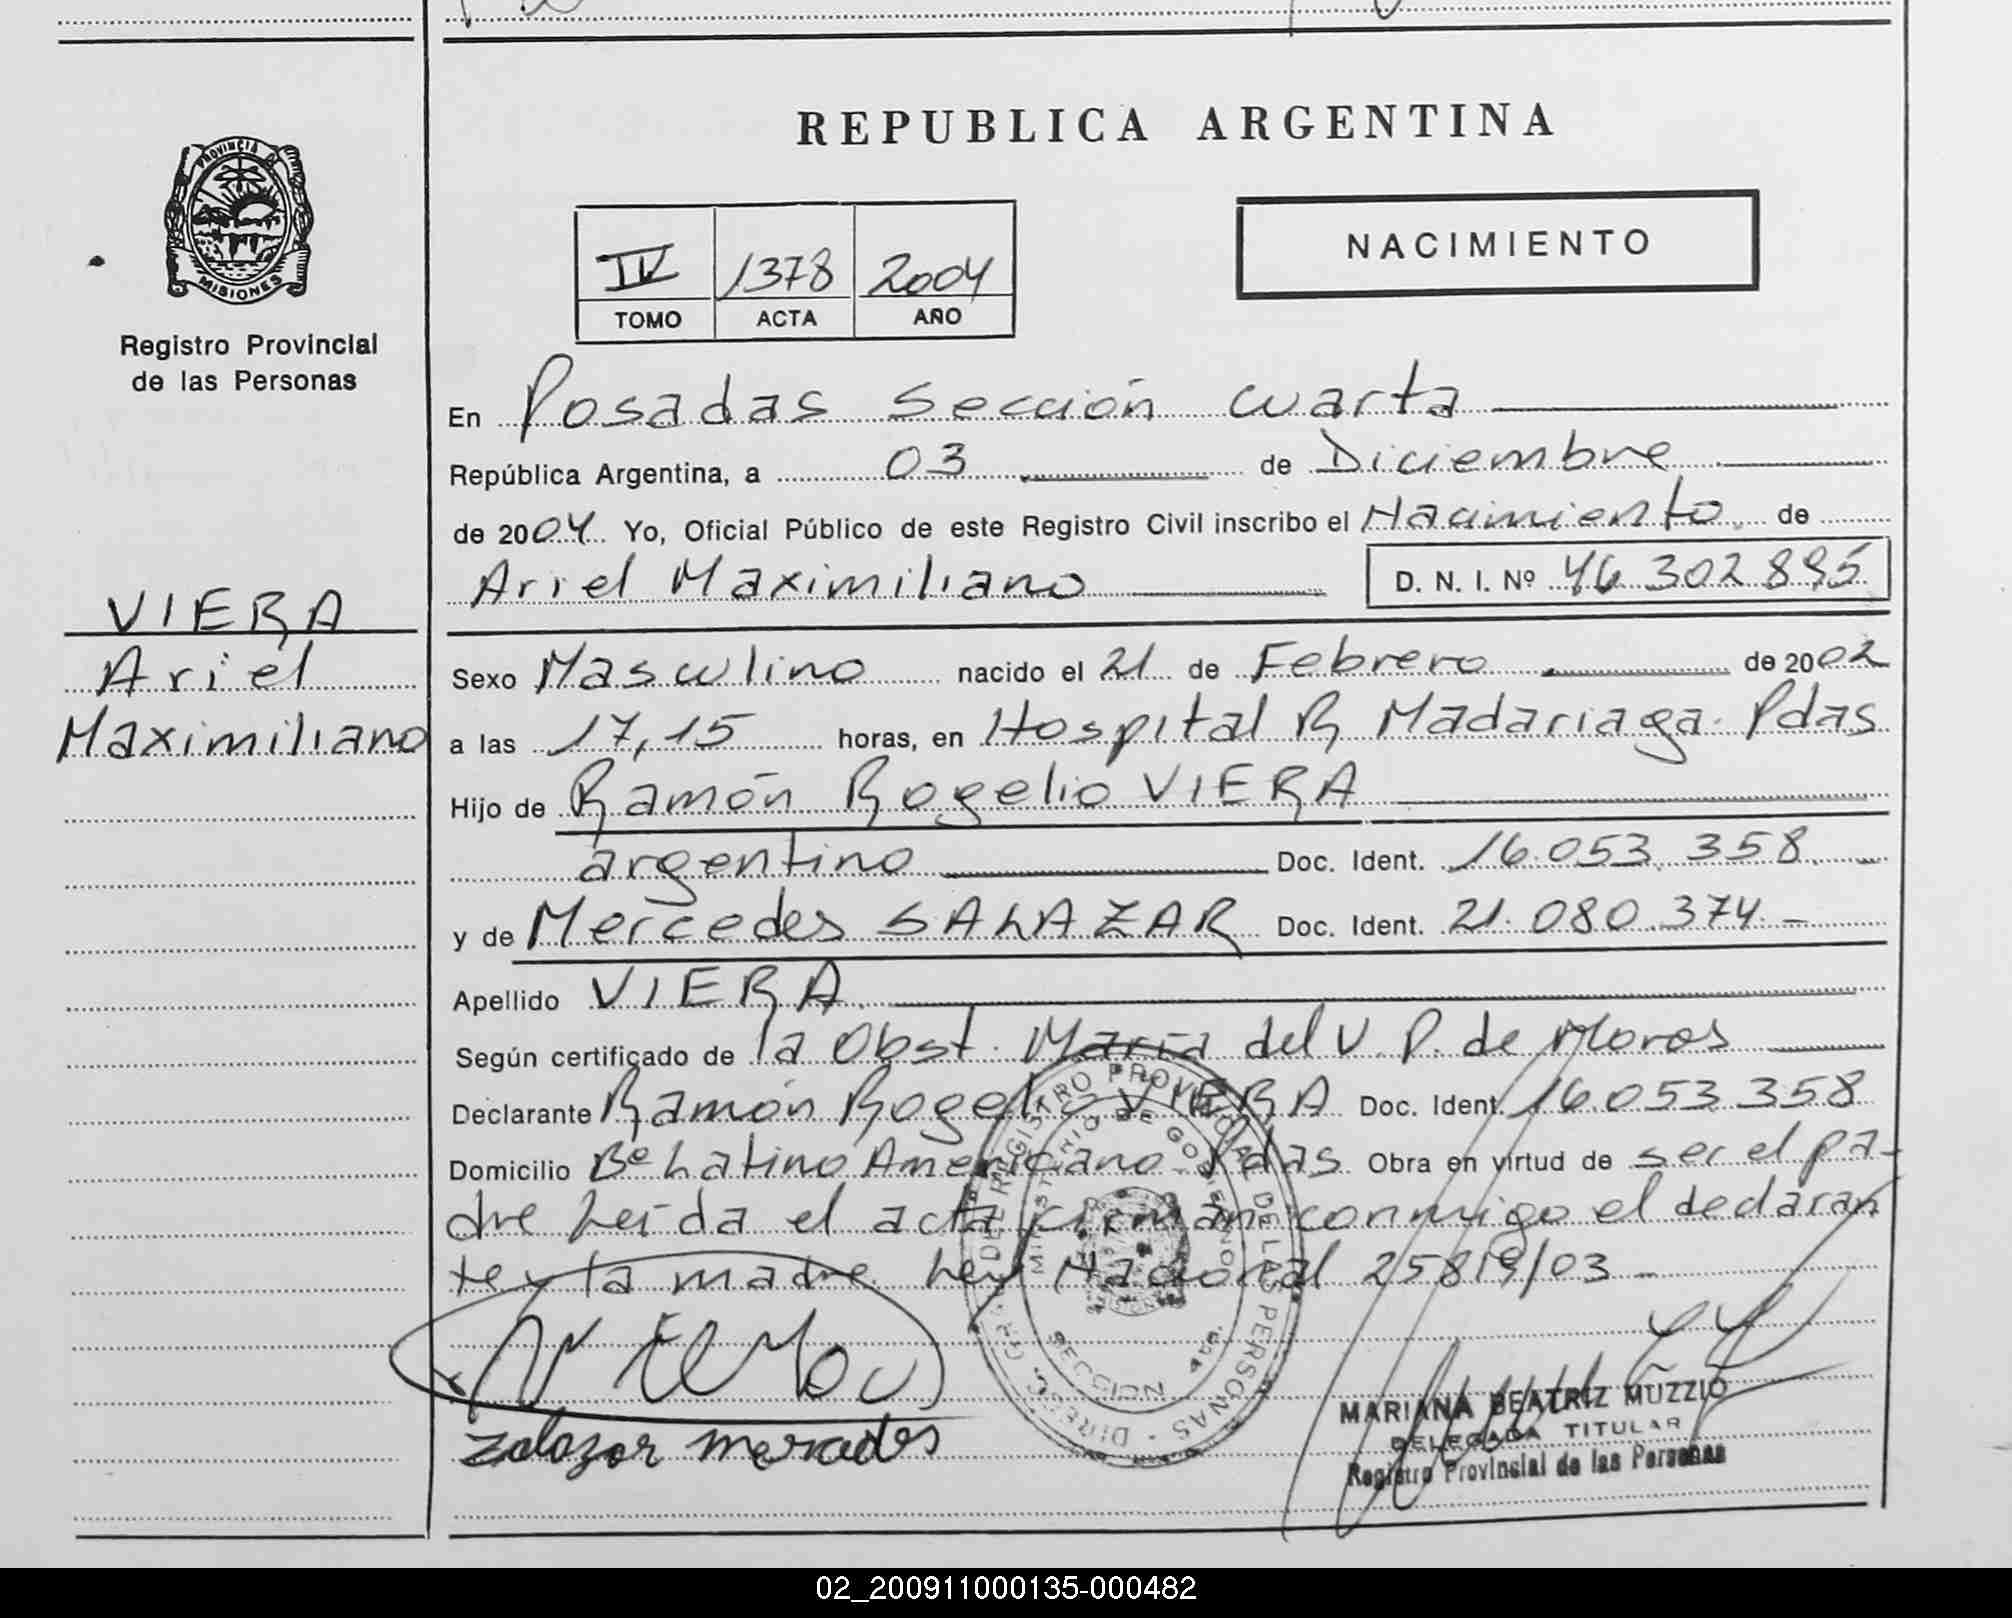 REPUBLICA ARGENTINA
PROVINCIA DE
MISIONES
Registro Provincial
de las Personas
IV 1378 2004
TOMO ACTA AÑO
NACIMIENTO
VIERA
Ariel
Maximiliano
En Posadas Sección Cuarta
República Argentina, a 03 de Diciembre
de 2004 Yo, Oficial Público de este Registro Civil inscribo el Nacimiento de
Ariel Maximiliano D. N. I. Nº 46 302 895
Sexo Masculino nacido el 21 de Febrero de 2002
a las 17,15 horas, en Hospital R Madariaga. Pdas
Hijo de Ramón Rogelio VIERA
argentino Doc. Ident. 16.053.358.
y de Mercedes SALAZAR Doc. Ident. 21.080.374.-
Apellido VIERA
Según certificado de la Obst. María del V. P. de Moros
Declarante Ramón Rogelio VIERA Doc. Ident. 16.053.358
Domicilio Bº Latino Americano. Pdas Obra en virtud de ser el pa-
dre Leída el acta firman conmigo el declaran
te y la madre. Ley Nacional 25819/03 -
Salazar mercedes
DIREC. GRAL. DE REGISTRO PROVINCIAL DE LAS PERSONAS
MINISTERIO DE GOBIERNO
SECCION 4ta
MARIANA BEATRIZ MUZZIO
DELEGADA TITULAR
Registro Provincial de las Personas
02_200911000135-000482